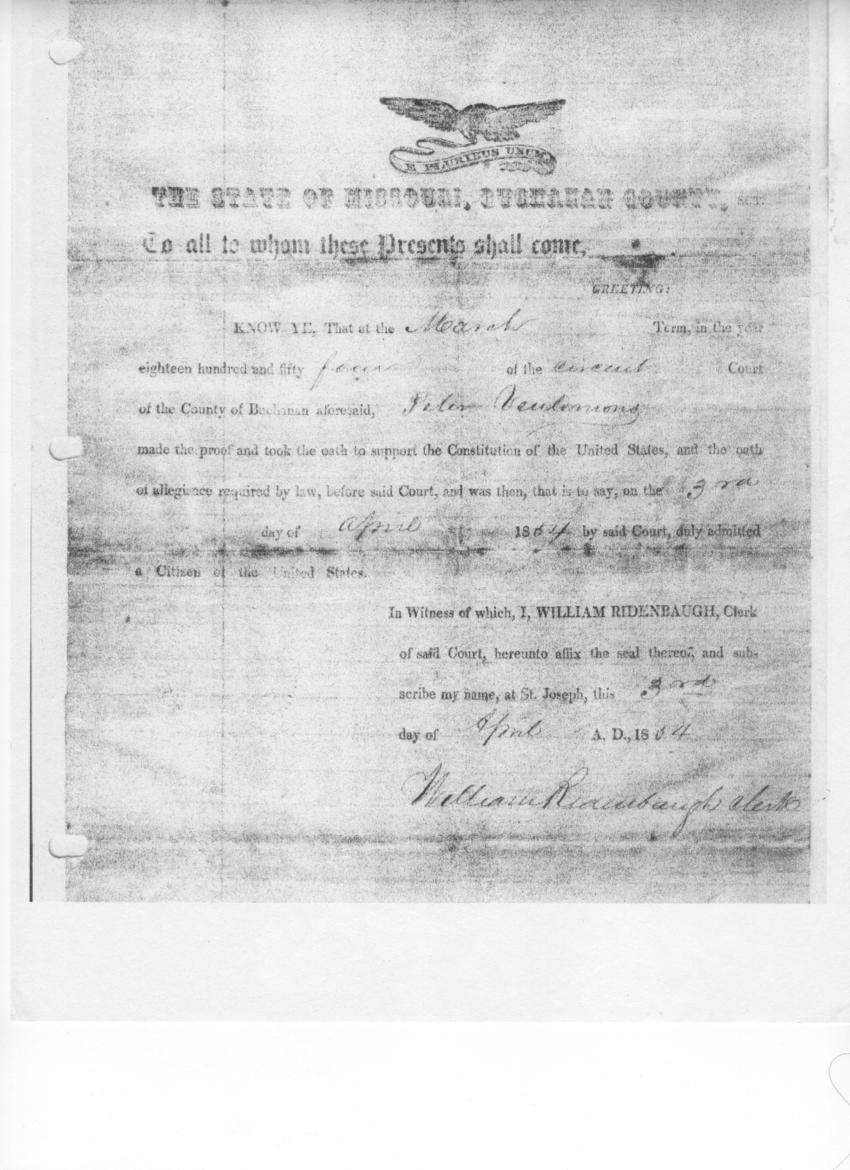 E PLURIBUS UNUM
THE STATE OF MISSOURI, BUCHANAN COUNTY, SCT.
To all to whom these Presents shall come,
GREETING:
KNOW YE, That at the March Term, in the year
eighteen hundred and fifty four of the circuit Court
of the County of Buchanan aforesaid, Peter
made the proof and took the oath to support the Constitution of the United States, and the oath
of allegiance required by law, before said Court, and was then, that is to say, on the 3rd
day of April 1854 by said Court, duly admitted
a Citizen of the United States.
In Witness of which, I, WILLIAM RIDENBAUGH, Clerk
of said Court, hereunto affix the seal thereof, and sub-
scribe my name, at St. Joseph, this 3rd
day of April A. D., 1854
William Ridenbaugh clerk